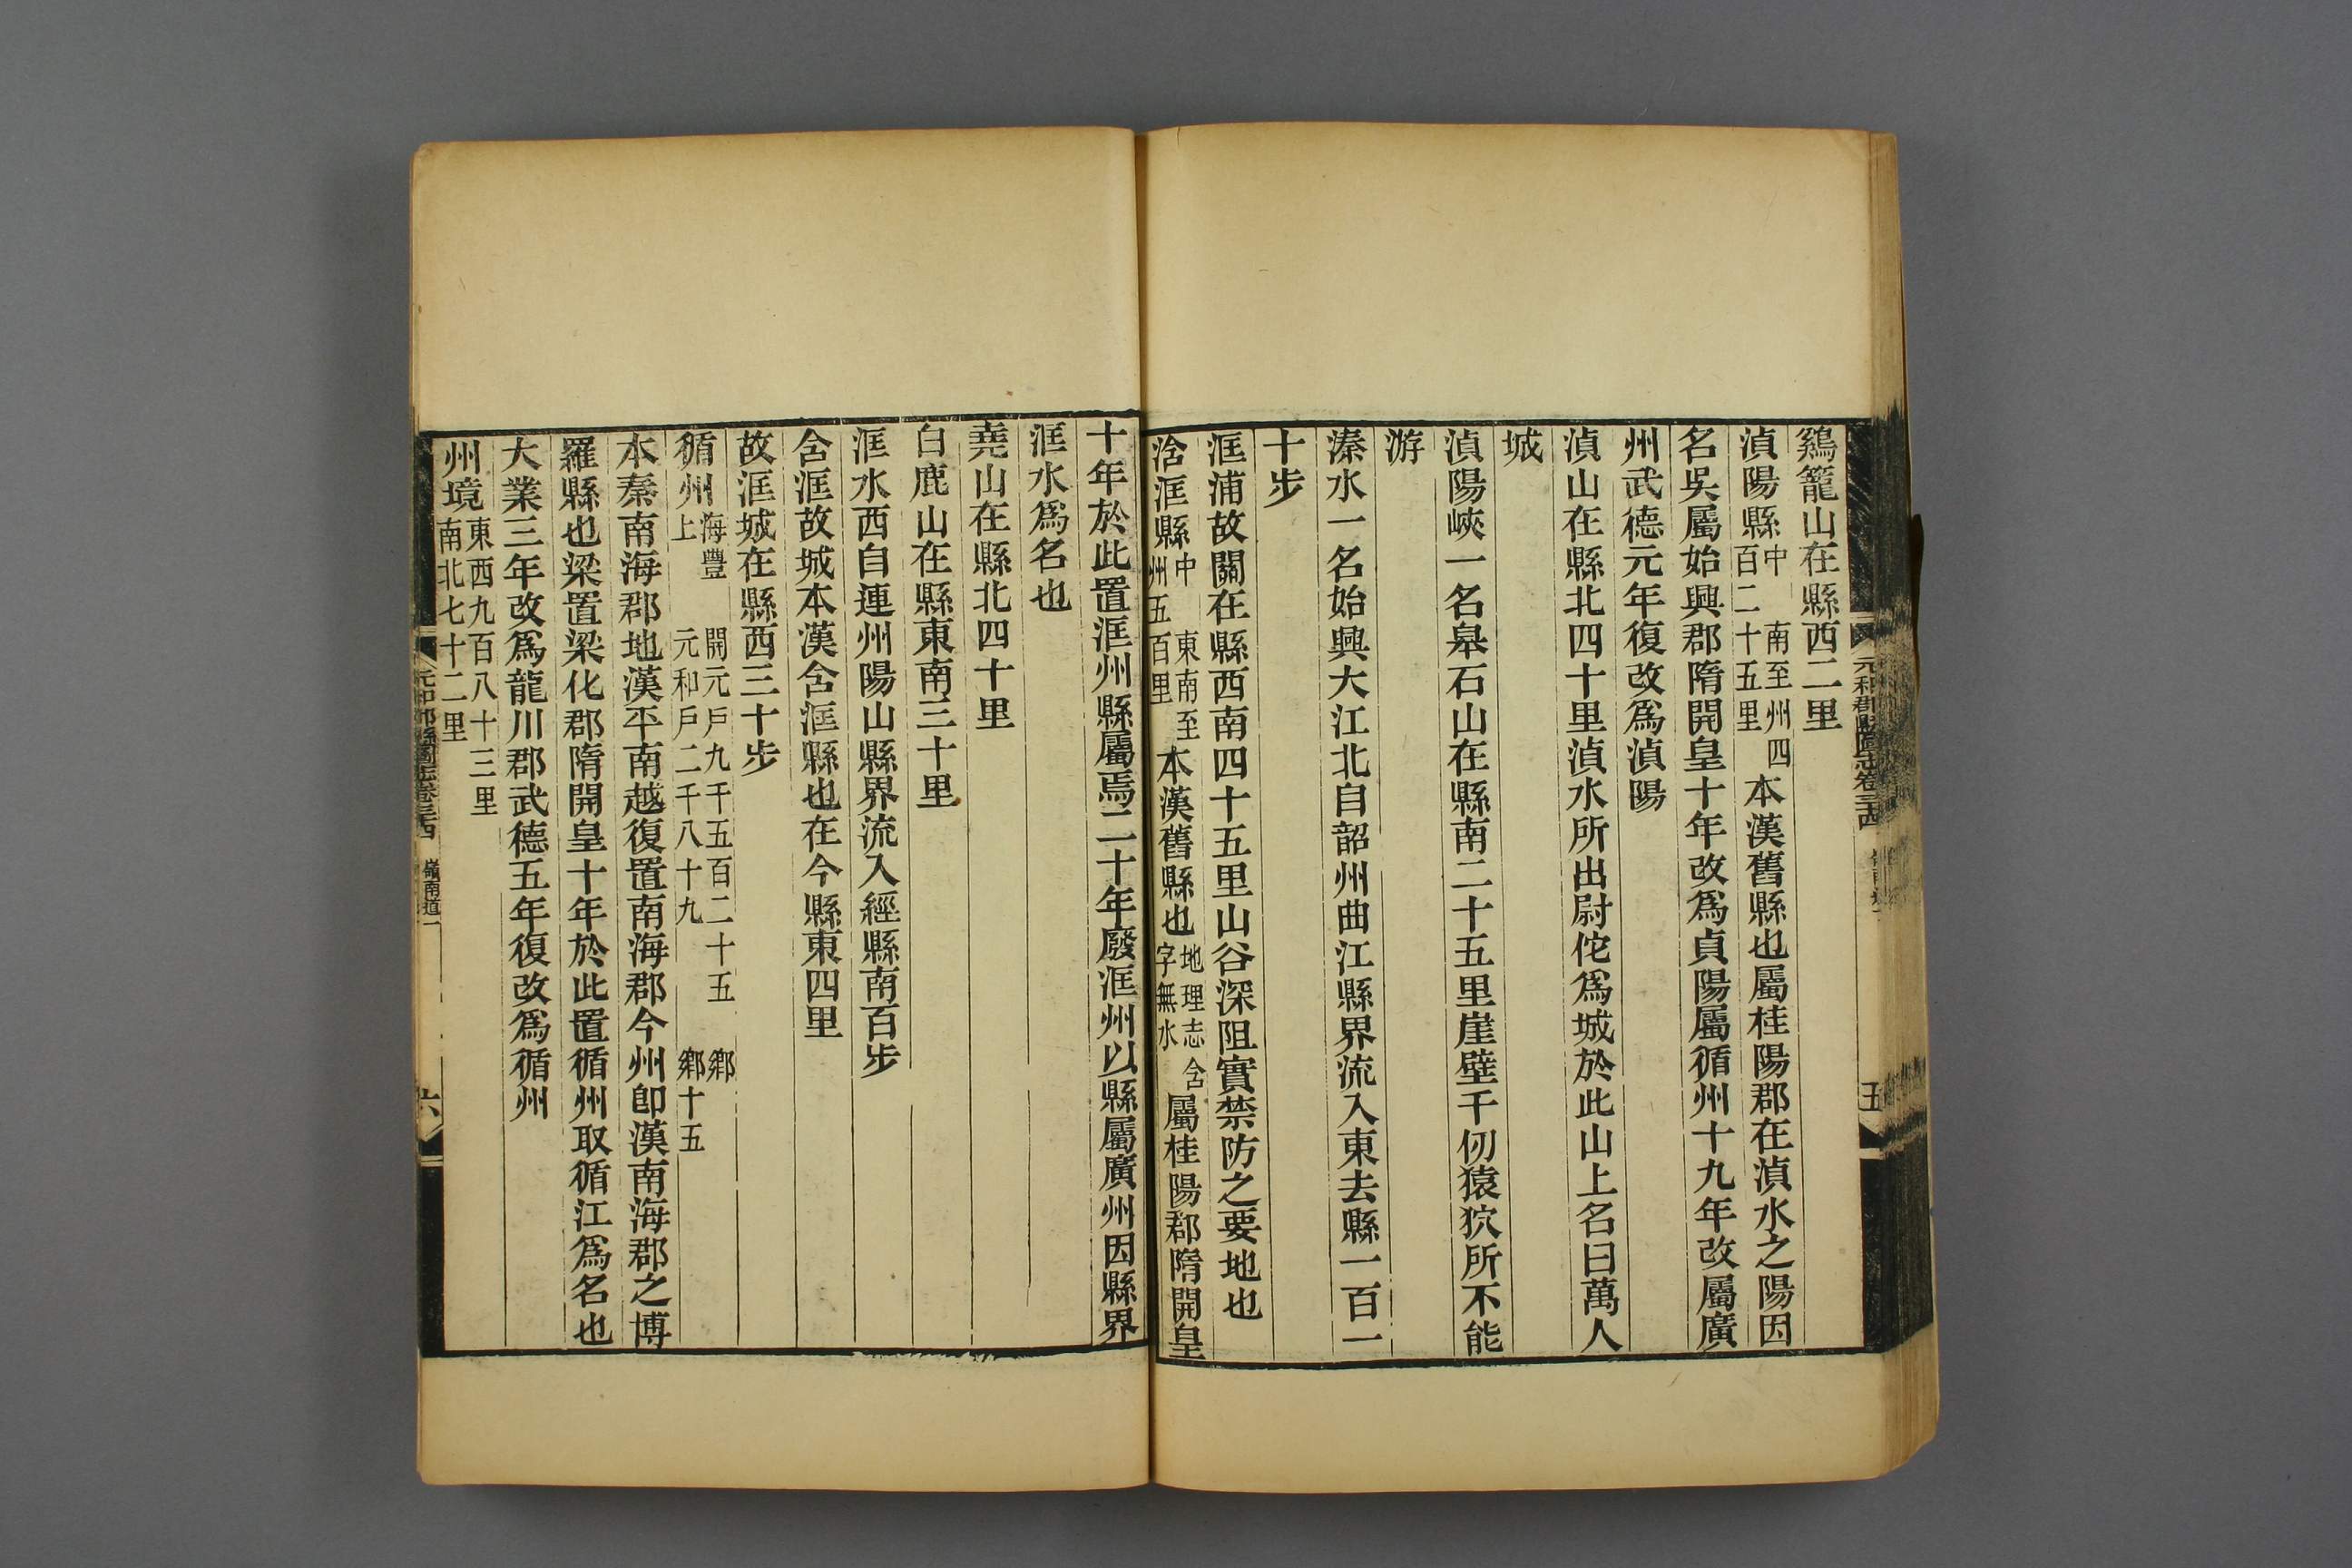 鷄籠山在縣西二里
湞陽縣中南至州四百二十五里本漢舊縣也屬桂陽郡在湞水之陽因
名吳屬始興郡隋開皇十年改爲貞陽屬循州十九年改屬廣
州武德元年復改爲湞陽
湞山在縣北四十里湞水所出尉佗爲城於此山上名曰萬人
城
湞陽峽一名皐石山在縣南二十五里崖壁千仞猿狖所不能
游
溱水一名始興大江北自韶州曲江縣界流入東去縣一百一
十步
洭浦故關在縣西南四十五里山谷深阻實禁防之要地也
浛洭縣中東南至州五百里本漢舊縣也地理志含字無水屬桂陽郡隋開皇
元和郡縣圖志卷三十四
五
十年於此置洭州縣屬焉二十年廢洭州以縣屬廣州因縣界
洭水爲名也
堯山在縣北四十里
白鹿山在縣東南三十里
洭水西自連州陽山縣界流入經縣南百步
含洭故城本漢含洭縣也在今縣東四里
故洭城在縣西三十步
循州海豐上開元戶九千五百二十五鄉元和戶二千八十九鄉十五
本秦南海郡地漢平南越復置南海郡今州卽漢南海郡之博
羅縣也梁置梁化郡隋開皇十年於此置循州取循江爲名也
大業三年改爲龍川郡武德五年復改爲循州
州境東西九百八十三里南北七十二里
元和郡縣圖志卷三十四 嶺南道一
六